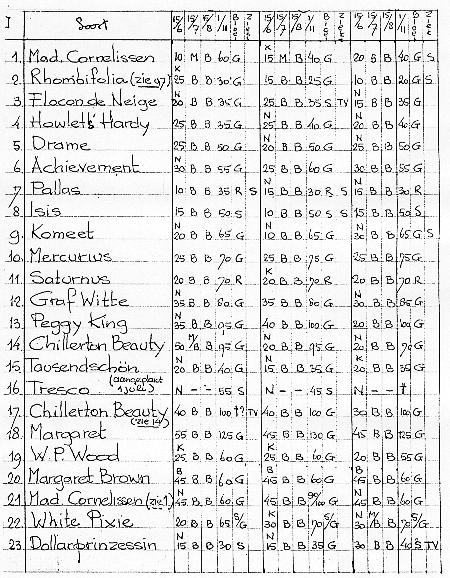 I Soort 15/6 15/7 15/8 1/11 Bloei Ziek 15/6 15/7 15/8 1/11 Bloei Ziek 15/6 15/7 15/8 1/11 Bloei Ziek
1. Mad. Cornelissen 10 M B 60 G K 15 M B 40 G 20 B B 40 G S
2. Rhombifolia (zie 97) K 25 B B 30 G 15 B B 25 G 10 B B 20 G S
3 Flocon de Neige N 20 B B 35 G 25 B B 35 S TV N 15 B B 35 G
4 Howlett's Hardy 25 B B 35 G N 25 B B 40 G 20 B B 40 G
5 Drame 25 B B 50 G N 20 B B 50 G 25 B B 50 G
6. Achievement N 30 B B 55 G 25 B B 60 G 30 B B 55 G
7 Pallas 10 B B 35 R S N 15 B B 30 R S N 15 B B 30 R
8. Isis 15 B B 50 S 10 B B 50 S S 15 B B 50 S
9. Komeet N 20 B B 65 G K 10 B B 65 G N 30 B B 65 G S
10. Mercurius 25 B B 70 G 25 B B 75 G 25 B B 75 G
11 Saturnus 20 B B 70 R K 20 B B 70 R 20 B B 70 R
12. Graf Witte N 35 B B 80 G 35 B B 80 G N 30 B B 85 G
13 Peggy King N 35 B B 95 G 40 B B 100 G K 20 B B 100 G
14. Chillerton Beauty 50 M/B B 95 G N 20 B B 95 G N 20 B B 70 G
15 Tausendschön N 20 B B 40 G N 15 B B 35 G K 20 B B 35 G
16 Tresco (aangeplant 1 juli) N - - 55 S N - - 45 S N - - †
17. Chillerton Beauty (zie 14) 40 B B 100 †? TV 40 B B 100 G 30 B B 100 G
18. Margaret 55 B B 125 G 45 B B 130 G 45 B B 125 G
19 W.P. Wood K 25 B B 60 G K 25 B B 60 G N 20 B B 55 G
20 Margaret Brown B 45 B B 60 G B 45 B B 60 G B 45 B B 60 G
21 Mad Cornelissen (zie 1) N 45 B B 60 G 45 B B 100 G N 45 B B 60 G
22. White Pixie 20 B B 65 S/G K 30 B B 70 S/G N 30 M/B B 75 S/G
23. Dollarprinzessin N 15 B B 30 S N 15 B B 35 G 30 B B 40 S TV